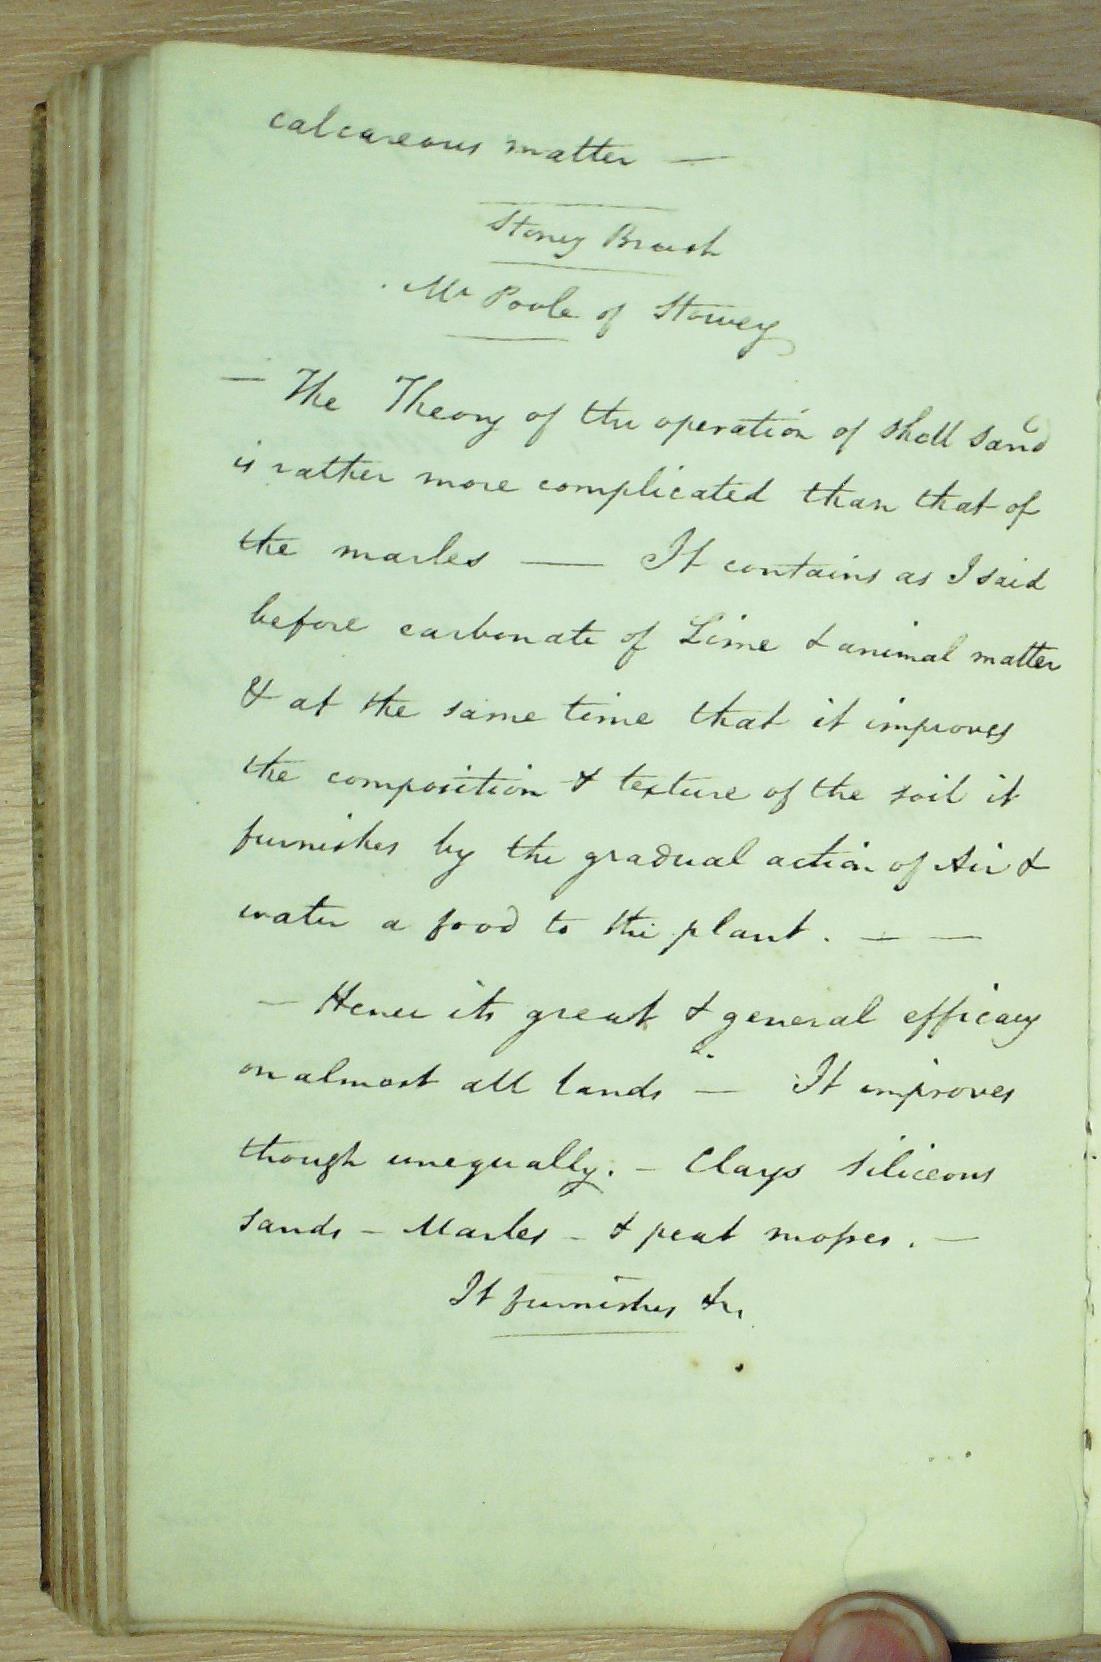 calcareous matter —
Stoney Brash
Mr Poole of Stowey
— The Theory of the operation of shell sand
is rather more complicated than that of
the marles — It contains as I said
before carbonate of Lime & animal matter
& at the same time that it improves
the composition & texture of the soil it
furnishes by the gradual action of Air &
water a food to the plant. — —
— Hence its great & general efficacy
on almost all lands — It improves
though unequally. — Clays siliceous
sands – Marles – & peat mosses. —
It furnishes &c